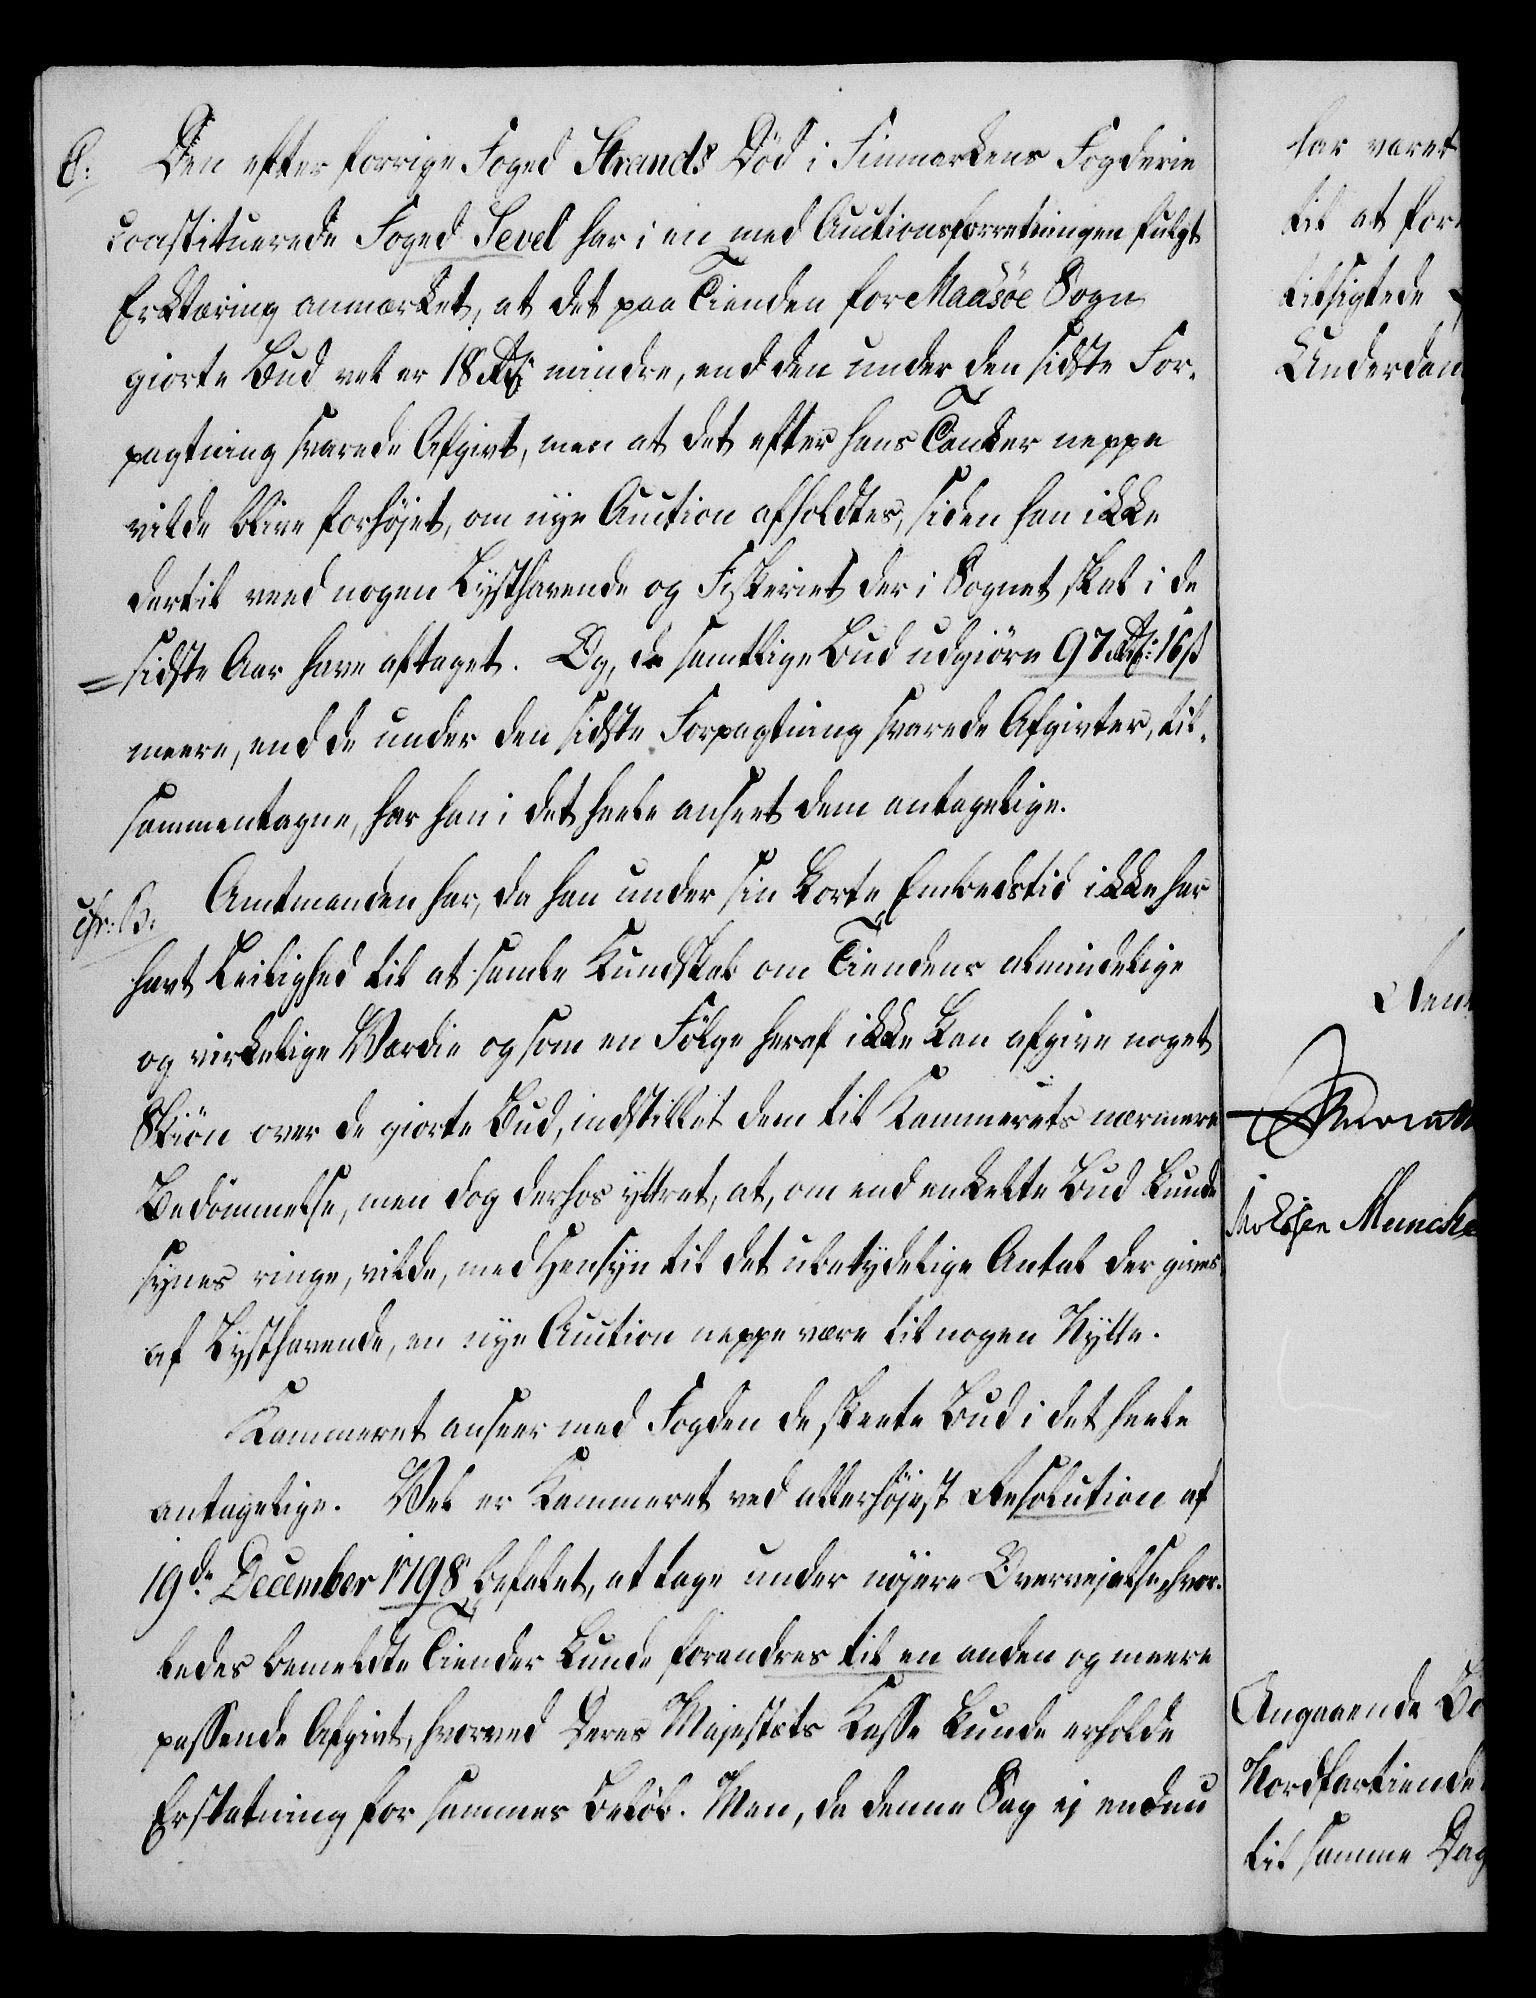 8: Den efter forrige Foged Strands Död i Finmarkens Fogderie
constituerede Foged Sevel har i en med Auctionsforretningen fulgt
Erklæring anmærket, at det paa Tienden for Maasöe Sogn
giorte Bud vel er 18 Rdr mindre, end den under den sidste For-
pagtning svarede Afgivt, men at det efter hans Tanker neppe
vilde blive forhöjet, om nye Auction afholdtes, siden han ikke
dertil veed nogen Lysthavende og Fiskeriet der i Sognet skal i de
sidste Aar have aftaget. Og, da samtlige Bud udgiöre 97 Rdr: 16 ß
meere, end de under den sidste Forpagtning svarede Afgivter, til-
sammentagne, har han i det heele anseet dem antagelige.
Amtmanden har, da han under sin korte Embedstid ikke har
havt Leilighed til at samle Kundskab om Tiendens almindelige
og virkelige Værdie og som en Fölge heraf ikke kan afgive noget
Skiön over de giorte Bud, indstillet dem til Kammerets nærmere
Bedömmelse, men dog derhos yttret, at, om end enkelte Bud kunde
synes ringe, vilde, med Hensyn til det ubetydelige Antal der gives
af Lysthavende, en nye Auction neppe være til nogen Nytte.
Kammeret anseer med Fogden de skeete Bud i det heele
antagelige. Vel er Kammeret ved allerhöjest Resolution af
19de December 1798 befalet, at tage under nöjere Overvejelse, hvor-
ledes bemeldte Tiender kunde forandres til en anden og meere
passende Afgivt, hvorved Deres Majestæts Kasse kunde erholde
Erstatning for sammes Beløb. Men, da denne Sag ej endnu
har været
til at for
tilsigtede
Underdan
Rent
Muncke
Angaaende Be
Nordfartiende
til samme Dag